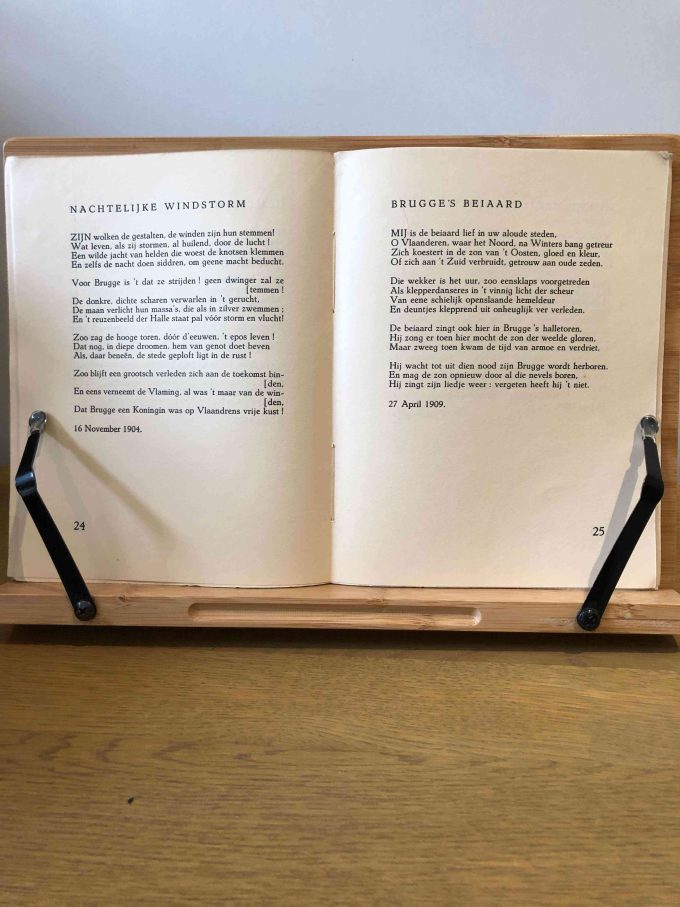 NACHTELIJKE WINDSTORM
ZIJN wolken de gestalten, de winden zijn hun stemmen!
Wat leven, als zij stormen, al huilend, door de lucht !
Een wilde jacht van helden die woest de knotsen klemmen
En zelfs de nacht doen siddren, om geene macht beducht.
Voor Brugge is 't dat ze strijden ! geen dwinger zal ze
[temmen !
De donkre, dichte scharen verwarlen in 't gerucht,
De maan verlicht hun massa's, die als in zilver zwemmen ;
En 't reuzenbeeld der Halle staat pal vóór storm en vlucht!
Zoo zag de hooge toren, dóór d'eeuwen, 't epos leven !
Dat nog, in diepe droomen, hem van genot doet beven
Als, daar beneên, de stede geploft ligt in de rust !
Zoo blijft een grootsch verleden zich aan de toekomst bin-
[den,
En eens verneemt de Vlaming, al was 't maar van de win-
[den,
Dat Brugge een Koningin was op Vlaandrens vrije kust !
16 November 1904.
24
BRUGGE'S BEIAARD
MIJ is de beiaard lief in uw aloude steden,
O Vlaanderen, waar het Noord, na Winters bang getreur
Zich koestert in de zon van 't Oosten, gloed en kleur,
Of zich aan 't Zuid verbruidt, getrouw aan oude zeden.
Die wekker is het uur, zoo eensklaps voorgetreden
Als klepperdanseres in 't vinnig licht der scheur
Van eene schielijk openslaande hemeldeur
En deuntjes klepprend uit onheuglijk ver verleden.
De beiaard zingt ook hier in Brugge's halletoren,
Hij zong er toen hier mocht de zon der weelde gloren,
Maar zweeg toen kwam de tijd van armoe en verdriet.
Hij wacht tot uit dien nood zijn Brugge wordt herboren.
En mag de zon opnieuw door al die nevels boren,
Hij zingt zijn liedje weer : vergeten heeft hij 't niet.
27 April 1909.
25